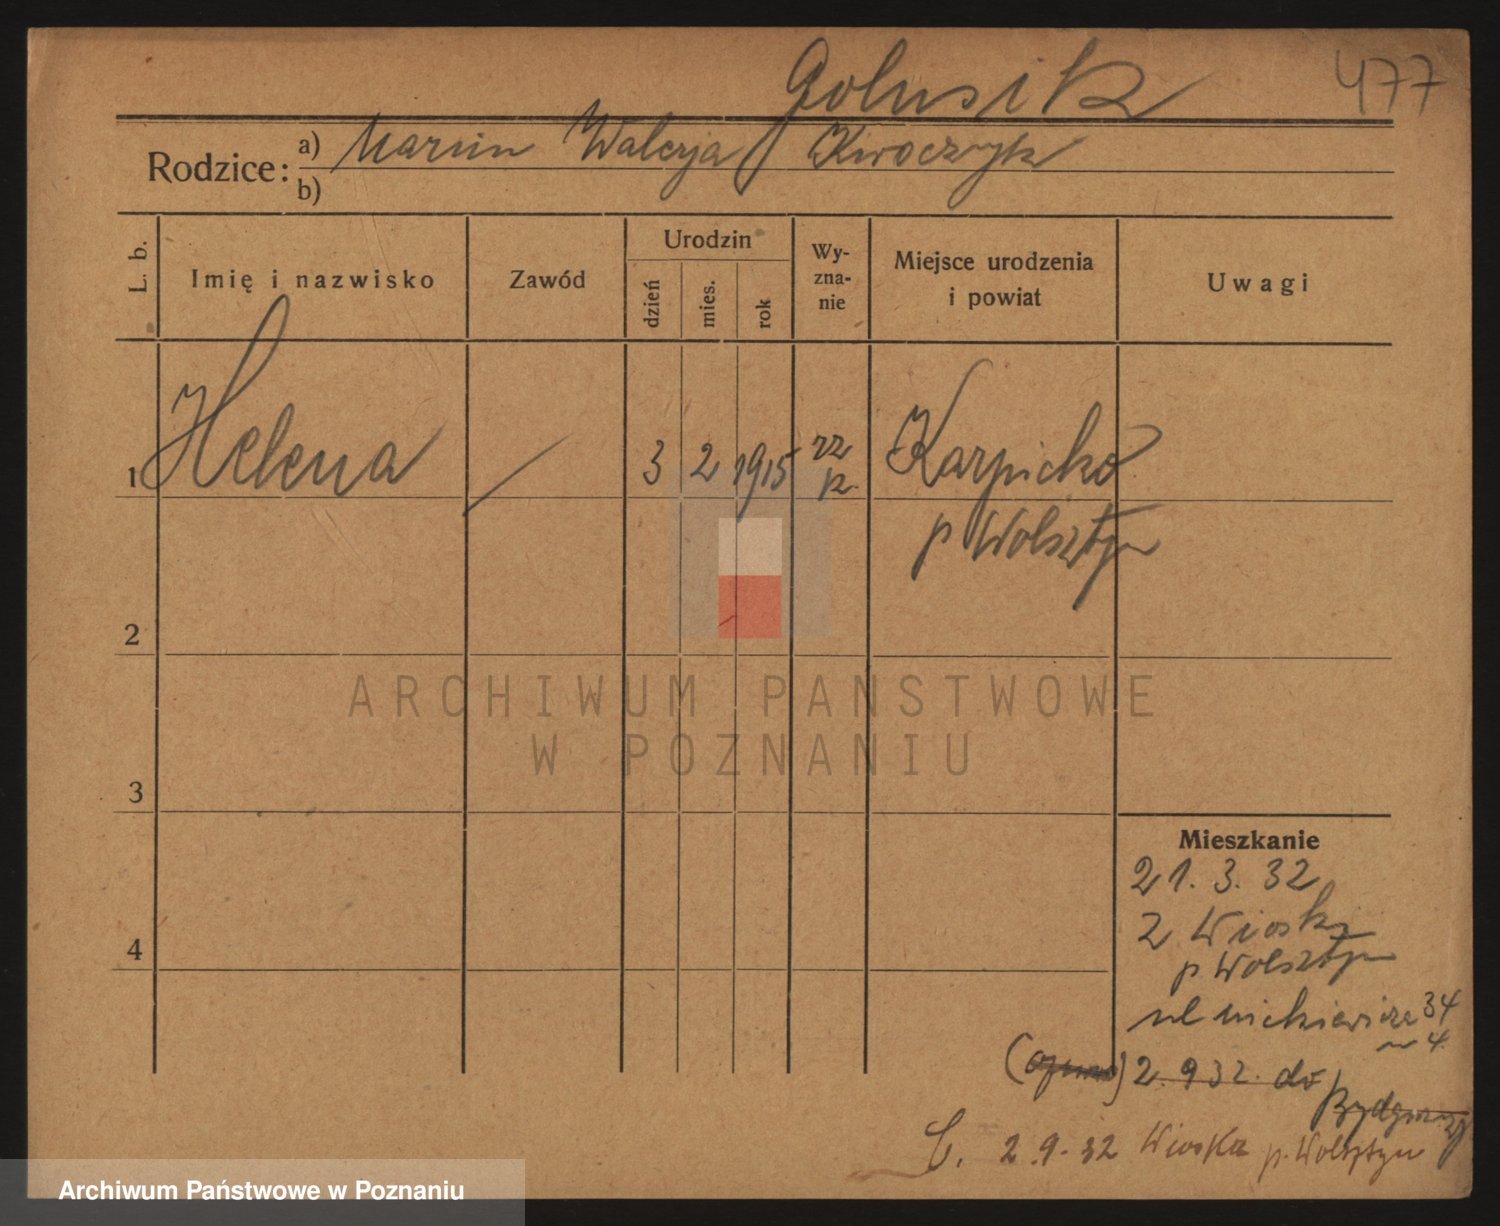 Golusik 477
Rodzice: a) Marcin Walerja / Kwoczyk
b)
L. b. Imię i nazwisko Zawód Urodzin dzień mies. rok Wy-zna-nie Miejsce urodzenia i powiat Uwagi
1 Helena 3 2 1915 rz k. Karpicko
p Wolsztyn
2
ARCHIWUM PANSTWOWE
W POZNANIU
3
Mieszkanie
21. 3. 32
4
z Wioski
p Wolsztyn
ul Mickiewicza 34
m 4.
2. 9 32. do
Bydgoszczy
2. 9. 32 Wioska p. Wolsztyn
Archiwum Państwowe w Poznaniu